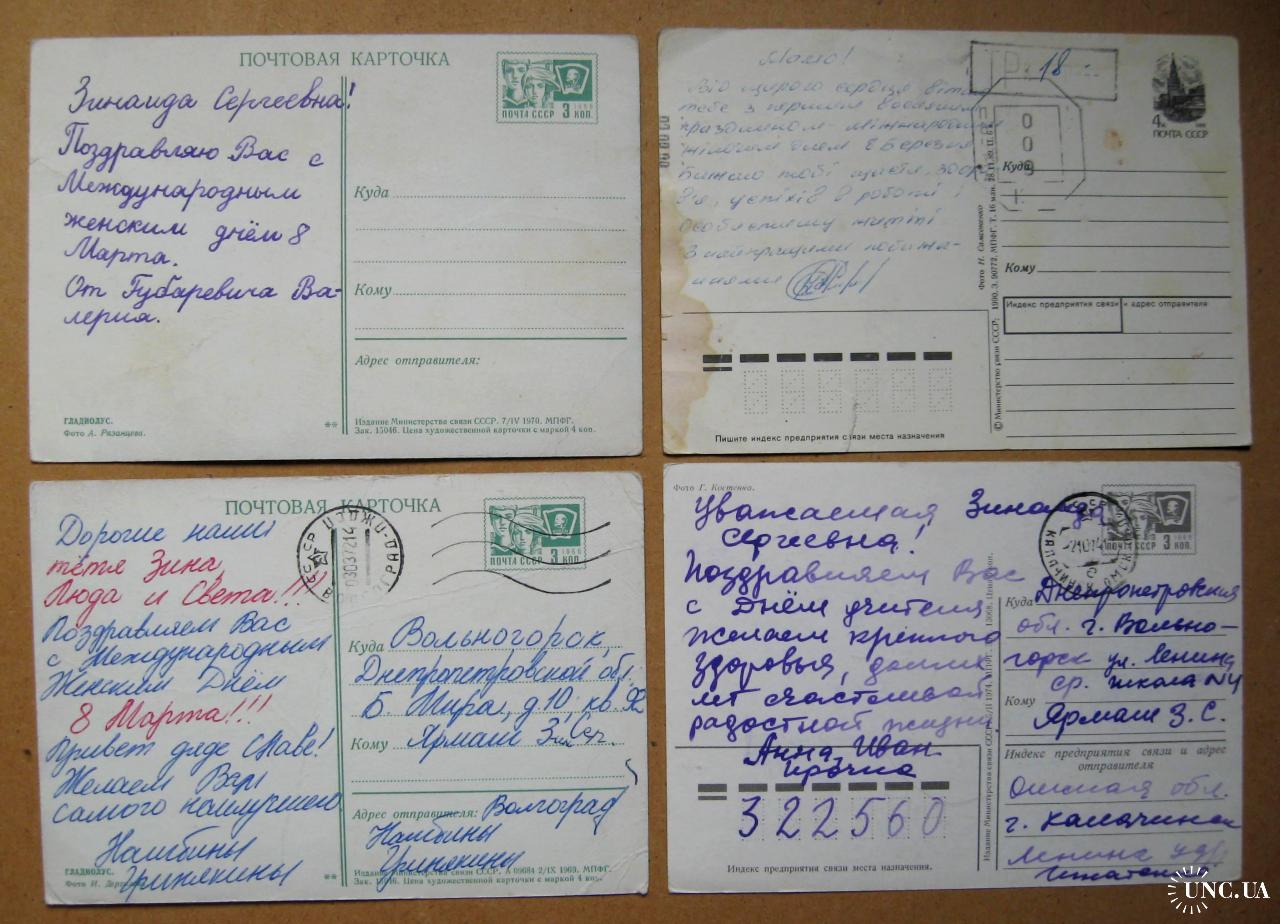 ПОЧТОВАЯ КАРТОЧКА
Зинаида Сергеевна!
Поздравляю Вас с
Международным
женским днём 8
Марта.
От Губаревича Ва-
лерия.
1966
ПОЧТА СССР 3 КОП.
Куда
Кому
Адрес отправителя:
ГЛАДИОЛУС.
Фото А. Рязанцева.
**
Издание Министерства связи СССР. 7/IV 1970. МПФГ.
Зак. 15046. Цена художественной карточки с маркой 4 коп.
Мамо!
Від щирого серця
тебе з першим весняним
праздником - міжнародним
жіночим днем 8 Березня
Бажаю тобі щастя, здоров
в'я, успіхів в роботі і
особистому житті
З найкращими побажа-
ннями
18
0
0
0
4к
ПОЧТА СССР
Куда
Кому
Индекс предприятия связи и адрес отправителя
Фото Н. Самсоненко
© Министерство связи СССР; 1990. З. 90772. МПФГ. Т. 16 млн. 28.11.89. Ц. 6 к.
Пишите индекс предприятия связи места назначения
ПОЧТОВАЯ КАРТОЧКА
Дорогие наши
тётя Зина,
Люда и Света!!!
Поздравляем Вас
с Международным
Женским Днём
8 Марта!!!
Привет дяде Славе!
Желаем Вам
самого наилучшего
ГЛАДИОЛУС.
Фото И.
**
1966
ПОЧТА СССР 3 КОП.
Куда Вольногорск,
Днепропетровской обл.
Б. Мира, д. 10, кв. 92
Кому Ярмаш Зин. Сер.
Адрес отправителя: Волгоград
Издание Министерства связи СССР. А 09684 2/IX 1969. МПФГ.
Зак. 15046. Цена художественной карточки с маркой 4 коп.
Фото Г. Костенко.
Уважаемая Зинаида
Сергеевна!
Поздравляем Вас
с Днём учителя
желаем крепкого
здоровья, долгих
лет счастливой
радостной жизни
Анна Иван
322560
Индекс предприятия связи места назначения.
ПОЧТА СССР 3 КОП.
Куда Днепропетровская
обл. г. Вольно-
горск ул. Ленина
ср. школа №4
Кому
Ярмаш З. С.
Индекс предприятия связи и адрес
отправителя
Омская обл.
г. Калачинск
Ленина
UNC.UA